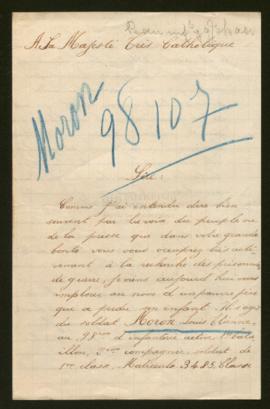 A Sa Majesté Très Catholique
Moron
98107
Sire:
Comme j'ai entendu dire bien
souvent par la voix du peuple ou
de la presse que dans votre grande
bonté vous vous occupiez très acti-
vement à la recherche des prisonniers
de guerre, je viens aujourd'hui vous
implorer au nom d'un pauvre père
qui a perdu son enfant. Il s'agit
du soldat Moron Louis Etienne,
au 98ème d'infanterie active, 1er batai
llon, 2me compagnie, soldat de
1re classe, Matricule 3483. Classe